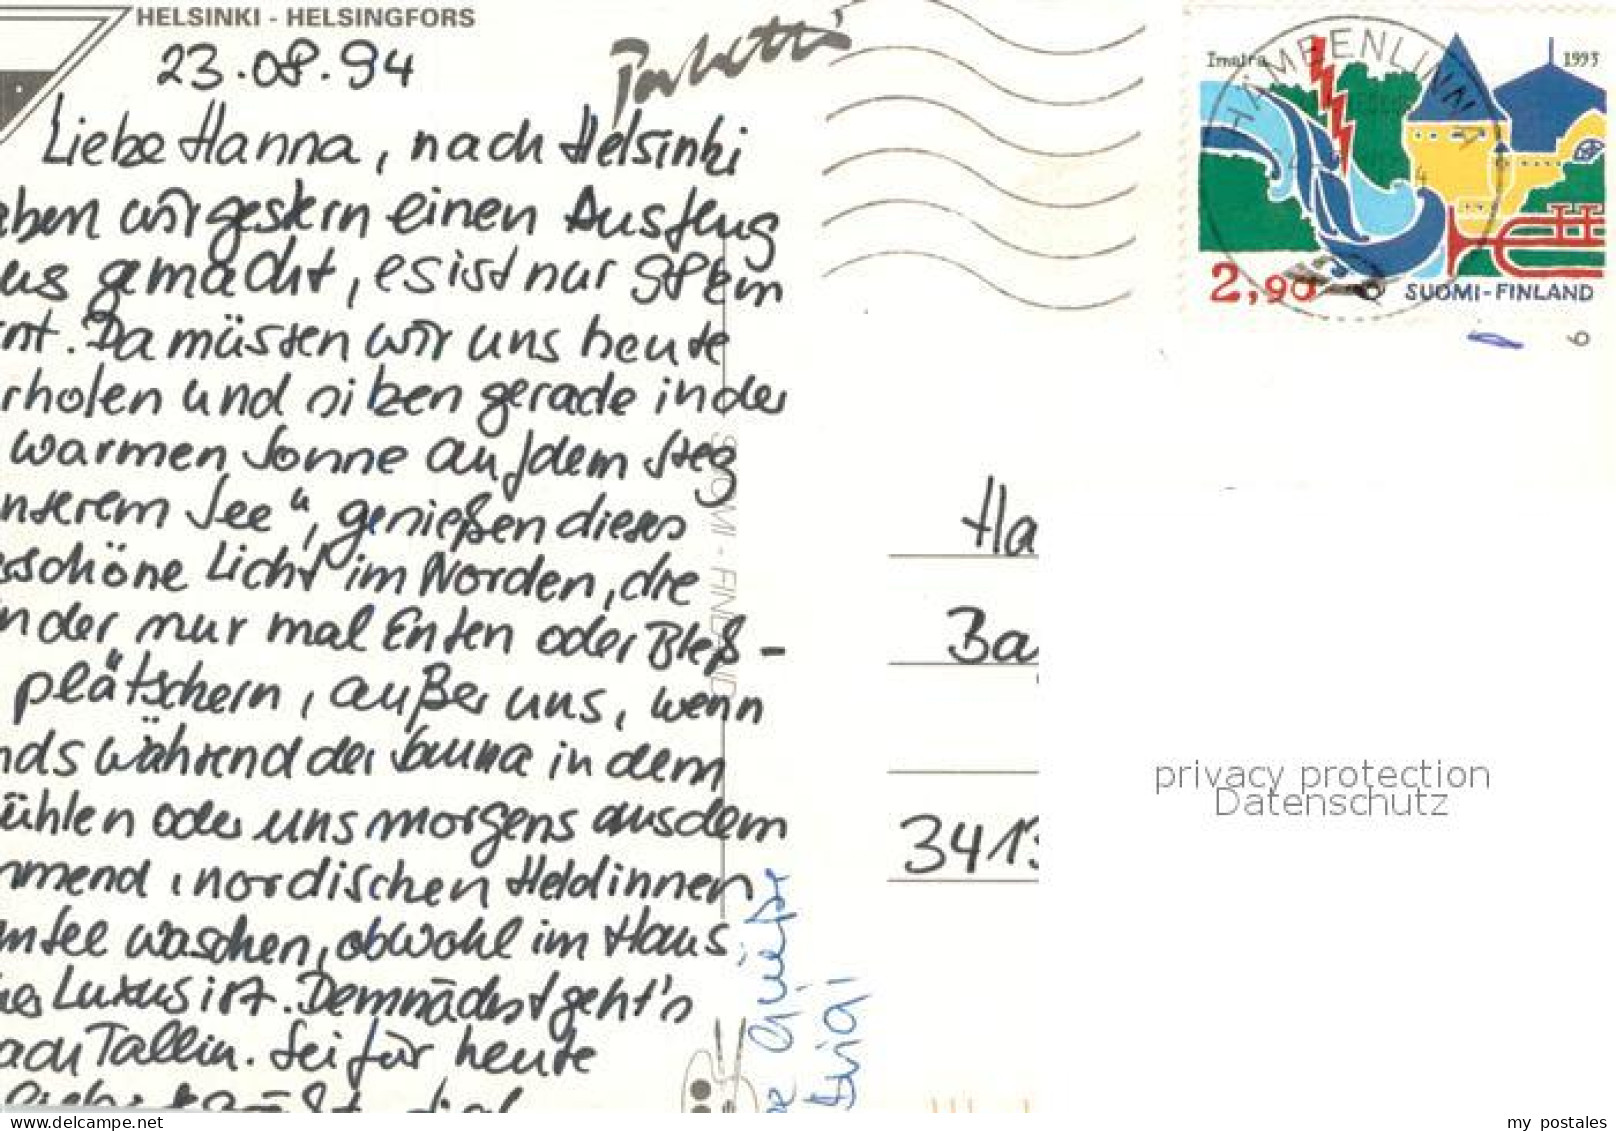 HELSINKI - HELSINGFORS
23.08.94
Liebe Hanna, nach Helsinki
aben wir gestern einen Ausflug
us gemacht, es ist nur 98 km
rnt. Da müssen wir uns heute
rholen und sitzen gerade in der
warmen Sonne auf dem Steg
nserem See", genießen dieses
sschöne Licht im Norden, die
in der nur mal Enten oder Bleß-
plätschern, außer uns, wenn
nds während der Sauna in dem
ühlen oder uns morgens aus dem
mmend, nordischen Heldinnen
m See waschen, obwohl im Haus
her Luxus ist. Demnächst geht's
ach Tallin. Sei für heute
SUOMI - FINLAND
Grüße
Imatra 1993
HÄMEENLINNA
2,90 SUOMI-FINLAND
6
Ha
Ba
3413
privacy protection
Datenschutz
delcampe.net
my_postales